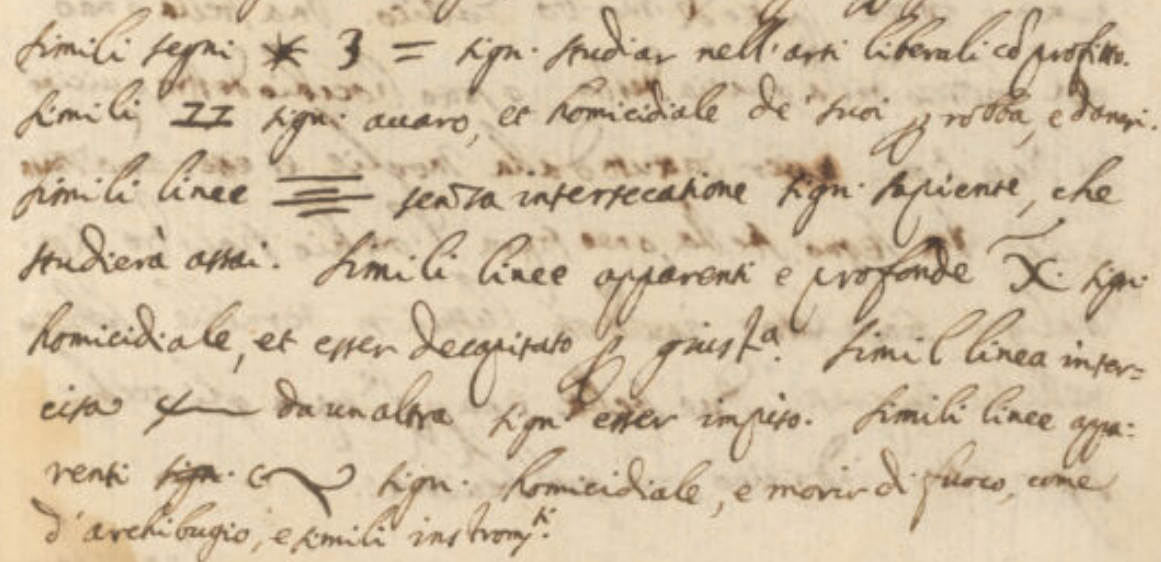 simili segni * 3 = sign. studiar nell'arti liberali cō profitto.
simili II sign. avaro, et homicidiale de' suoi ꝑ robba, e danari.
simili linee ≡ senza intersecatione sign. sapiente, che
studierà assai. simili linee apparenti e profonde X. sign.
homicidiale, et esser decapitato ꝑ giust.ª simil linea inter=
cisa da un altra sign. esser impiso. simili linee appa:
renti sign. sign. homicidiale, e morir di fuoco, come
d'archibugio, e simili instrom.ti